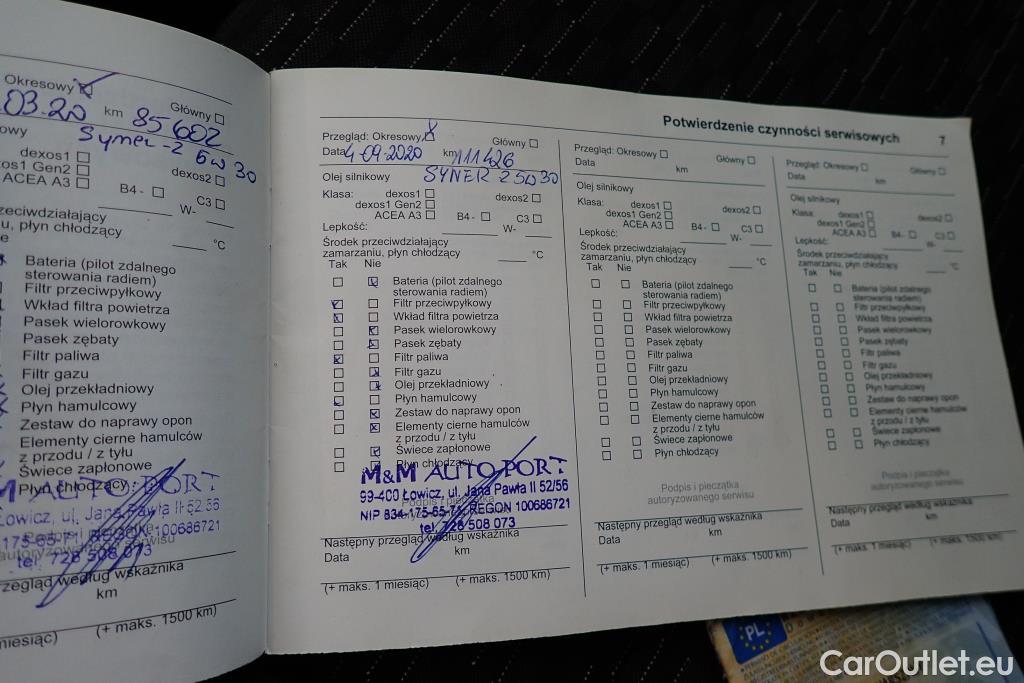 Okresowy Główny
.03.20 km 85602
owy Syner-Z 5w30
dexos1
os1 Gen2 dexos2
ACEA A3 B4- C3
W-
zeciwdziałający
u, płyn chłodzący °C
e
Bateria (pilot zdalnego
sterowania radiem)
Filtr przeciwpyłkowy
Wkład filtra powietrza
Pasek wielorowkowy
Pasek zębaty
Filtr paliwa
Filtr gazu
Olej przekładniowy
Płyn hamulcowy
Zestaw do naprawy opon
Elementy cierne hamulców
z przodu / z tyłu
Świece zapłonowe
Płyn chłodzący
M AUTO PORT
Łowicz, ul. Jana Pawła II 52/56
175-65-71, REGON 100686721
tel. 728 508 073
autoryzowanego serwisu
zegląd według wskaźnika
km
miesiąc) (+ maks. 1500 km)
Potwierdzenie czynności serwisowych 7
Przegląd: Okresowy Główny
Data 4-09-2020 km 111426
Olej silnikowy SYNER Z 5W30
Klasa: dexos1 dexos2
dexos1 Gen2
ACEA A3 B4- C3
Lepkość: W-
Środek przeciwdziałający
zamarzaniu, płyn chłodzący °C
Tak Nie
Bateria (pilot zdalnego
sterowania radiem)
Filtr przeciwpyłkowy
Wkład filtra powietrza
Pasek wielorowkowy
Pasek zębaty
Filtr paliwa
Filtr gazu
Olej przekładniowy
Płyn hamulcowy
Zestaw do naprawy opon
Elementy cierne hamulców
z przodu / z tyłu
Świece zapłonowe
Płyn chłodzący
M&M AUTO PORT
99-400 Łowicz, ul. Jana Pawła II 52/56
Podpis i pieczątka
NIP 834-175-65-71, REGON 100686721
tel. 728 508 073
Następny przegląd według wskaźnika
Data km
(+ maks. 1 miesiąc) (+ maks. 1500 km)
Przegląd: Okresowy Główny
Data km
Olej silnikowy
Klasa: dexos1 dexos2
dexos1 Gen2
ACEA A3 B4- C3
Lepkość: W-
Środek przeciwdziałający
zamarzaniu, płyn chłodzący °C
Tak Nie
Bateria (pilot zdalnego
sterowania radiem)
Filtr przeciwpyłkowy
Wkład filtra powietrza
Pasek wielorowkowy
Pasek zębaty
Filtr paliwa
Filtr gazu
Olej przekładniowy
Płyn hamulcowy
Zestaw do naprawy opon
Elementy cierne hamulców
z przodu / z tyłu
Świece zapłonowe
Płyn chłodzący
Podpis i pieczątka
autoryzowanego serwisu
Następny przegląd według wskaźnika
Data km
(+ maks. 1 miesiąc) (+ maks. 1500 km)
Przegląd: Okresowy Główny
Data km
Olej silnikowy
Klasa: dexos1 dexos2
dexos1 Gen2
ACEA A3 B4- C3
Lepkość: W-
Środek przeciwdziałający
zamarzaniu, płyn chłodzący °C
Tak Nie
Bateria (pilot zdalnego
sterowania radiem)
Filtr przeciwpyłkowy
Wkład filtra powietrza
Pasek wielorowkowy
Pasek zębaty
Filtr paliwa
Filtr gazu
Olej przekładniowy
Płyn hamulcowy
Zestaw do naprawy opon
Elementy cierne hamulców
z przodu / z tyłu
Świece zapłonowe
Płyn chłodzący
Podpis i pieczątka
autoryzowanego serwisu
Następny przegląd według wskaźnika
Data km
(+ maks. 1 miesiąc) (+ maks. 1500 km)
PL
CarOutlet.eu